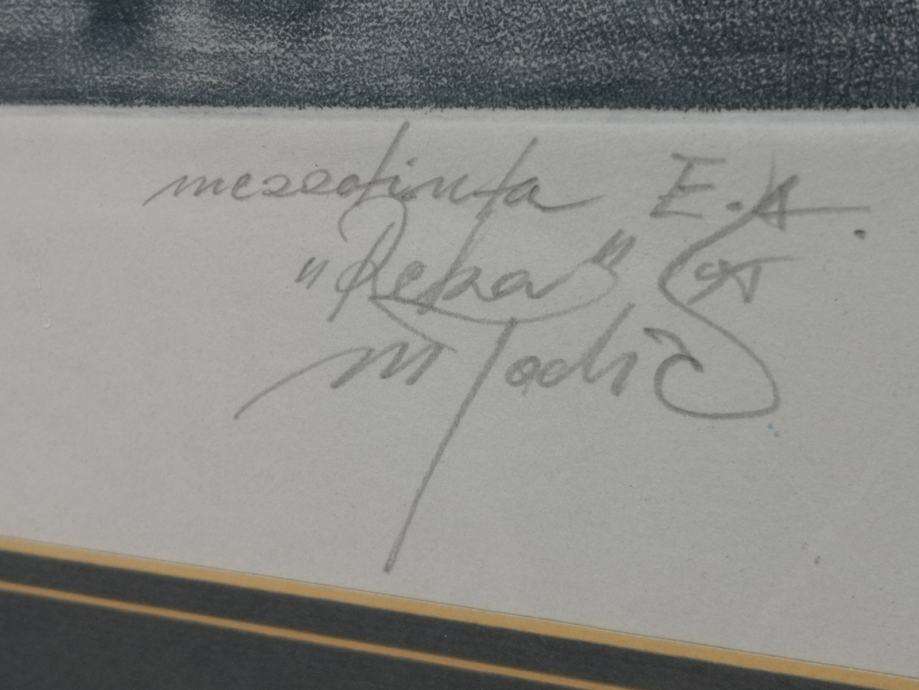 mezzotinta E.A.
"Reka"
M Tadić